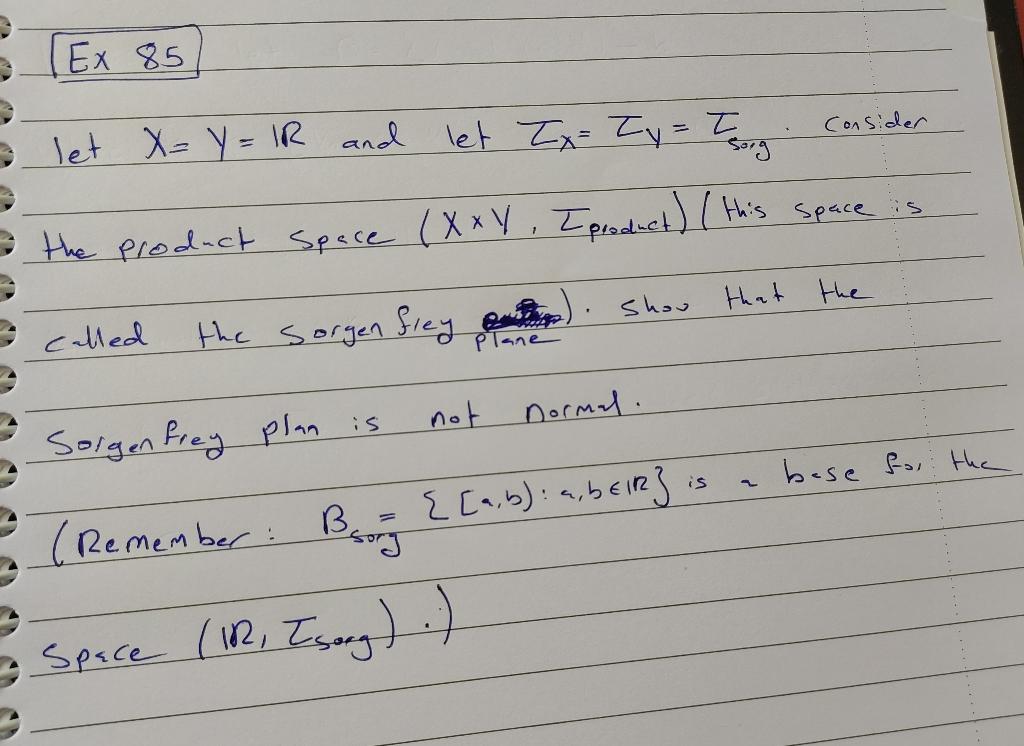 Ex 85
let X = Y = ℝ and let τ_X = τ_Y = τ_sorg. Consider
the product space (X×Y, τ_product) (this space is
called the sorgenfrey plane). show that the
Sorgenfrey plan is not normal.
(Remember: B_sorg = {[a,b): a,b∈ℝ} is a base for the
Space (ℝ, τ_sorg).)